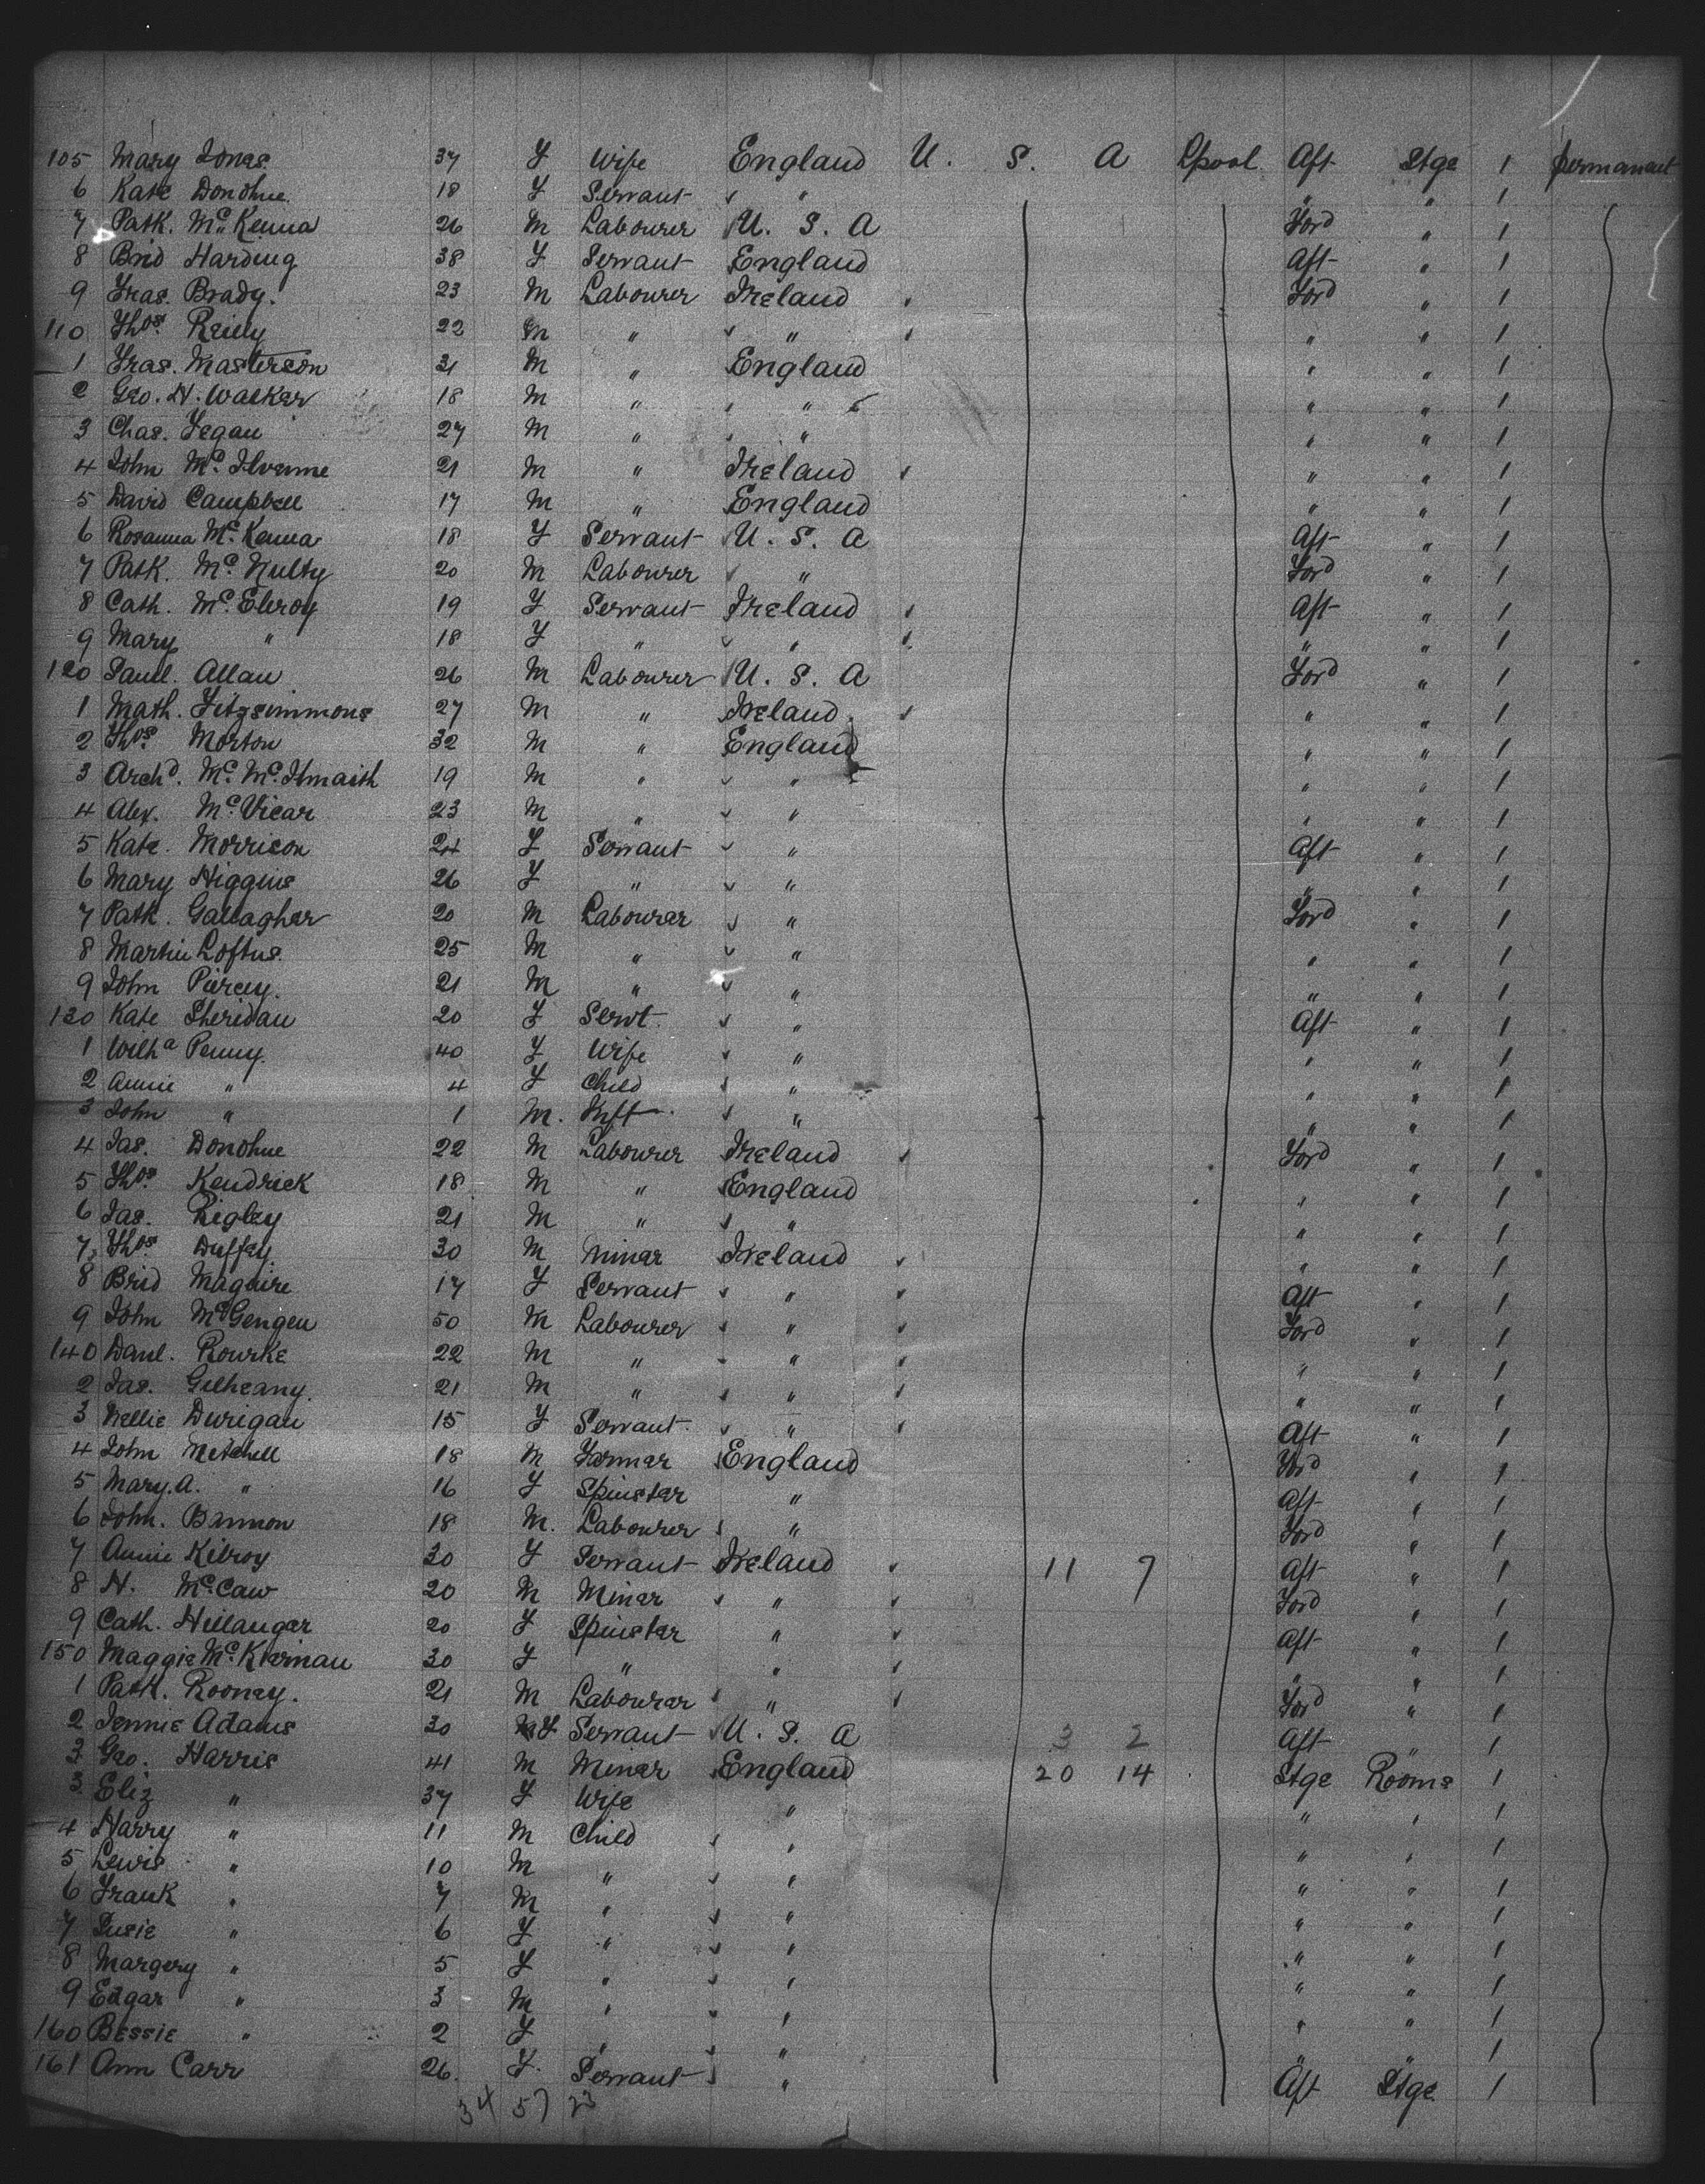 105 Mary Jones 37 F Wife England U. S. A Lpool Aft Stge 1 permanent
6 Kate Donohue 18 F Servant " " " 1
7 Patk. McKenna 26 M Labourer U. S. A Ford " 1
8 Brid Harding 38 F Servant England Aft " 1
9 Fras. Brady. 23 M Labourer Ireland Ford " 1
110 Thos. Reilly 22 M " " " " 1
1 Fras. Masterson 21 M " England " " 1
2 Geo. H. Walker 18 M " " " " 1
3 Chas. Fegan 27 M " " " " 1
4 John McIlvenne 21 M " Ireland " " 1
5 David Campbell 17 M " England " " 1
6 Rosanna McKenna 18 F Servant U. S. A Aft " 1
7 Patk. McNulty 20 M Labourer " Ford " 1
8 Cath. McElroy 19 F Servant Ireland Aft " 1
9 Mary " 18 F " " " " 1
120 Saml. Allan 26 M Labourer U. S. A Ford " 1
1 Math. Fitzsimmons 27 M " Ireland " " 1
2 Thos. Morton 32 M " England " " 1
3 Archd. Mc. 19 M " " " " 1
4 Alex. McVicar 23 M " " " " 1
5 Kate Morrison 24 F Servant " Aft " 1
6 Mary Higgins 26 F " " " " 1
7 Patk. Gallagher 20 M Labourer " Ford " 1
8 Martin Loftus. 25 M " " " " 1
9 John Piercy. 21 M " " " " 1
130 Kate Sheridan 20 F Servt. " Aft " 1
1 Wilha Penny. 40 F Wife " " " 1
2 Annie " 4 F Child " " " 1
3 John " 1 M. Inft " " " 1
4 Jas. Donohue 22 M Labourer Ireland Ford " 1
5 Thos. Kendrick 18 M " England " " 1
6 Jas. Rigley 21 M " " " " 1
7 Thos. Duffey 30 M Miner Ireland " " 1
8 Brid Maguire 17 F Servant " Aft " 1
9 John McGengen 50 M Labourer " Ford " 1
140 Danl. Rourke 22 M " " " " 1
2 Jas. Gilheany. 21 M " " " " 1
3 Nellie Durigan 15 F Servant " Aft " 1
4 John Mitchell 18 M Farmer England Ford " 1
5 Mary. A. " 16 F Spinster " Aft " 1
6 John. Bannon 18 M. Labourer " Ford " 1
7 Annie Kilroy 30 F Servant Ireland 11 7 Aft " 1
8 H. McCaw 20 M Miner " Ford " 1
9 Cath. 20 F Spinster " Aft " 1
150 Maggie McKiernan 30 F " " " " 1
1 Patk. Rooney. 21 M Labourer " Ford " 1
2 Jennie Adams 30 F Servant U. S. A 3 2 Aft " 1
3 Geo. Harris 41 M Miner England 20 14 Stge Rooms 1
3 Eliz " 37 F Wife " " " 1
4 Harry " 11 M Child " " " 1
5 Lewis " 10 M " " " " 1
6 Frank " 7 M " " " " 1
7 Susie " 6 F " " " " 1
8 Margery " 5 F " " " " 1
9 Edgar " 3 M " " " " 1
160 Bessie " 2 F " " " " 1
161 Ann Carr 26. F. Servant " Aft Stge 1
34 57 23